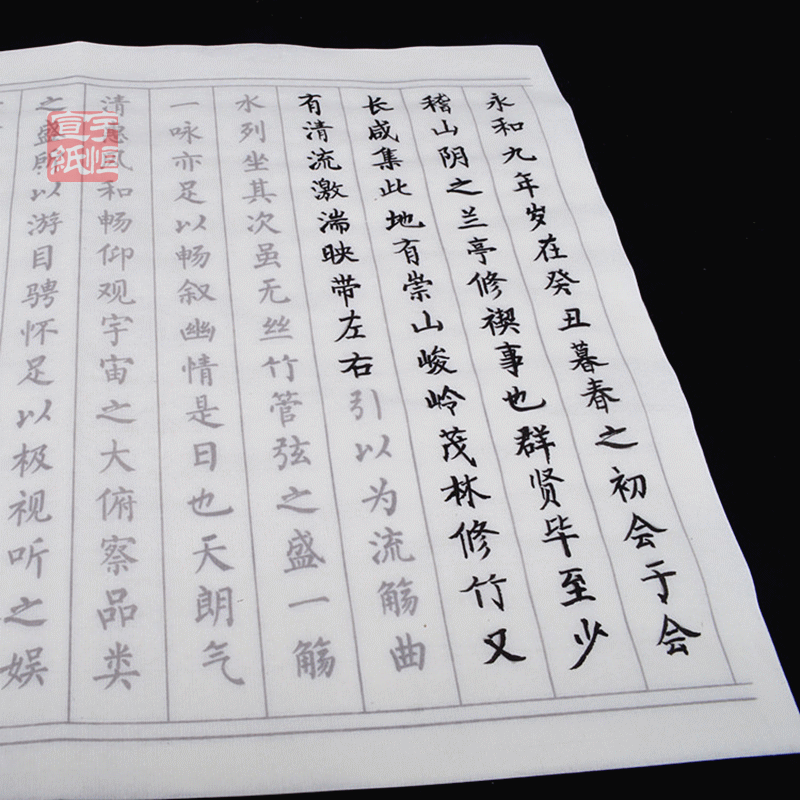 永和九年岁在癸丑暮春之初会于会
稽山阴之兰亭修禊事也群贤毕至少
长咸集此地有崇山峻岭茂林修竹又
有清流激湍映带左右引以为流觞曲
水列坐其次虽无丝竹管弦之盛一觞
一咏亦足以畅叙幽情是日也天朗气
清惠风和畅仰观宇宙之大俯察品类
之盛所以游目骋怀足以极视听之娱
宇恒
宣紙